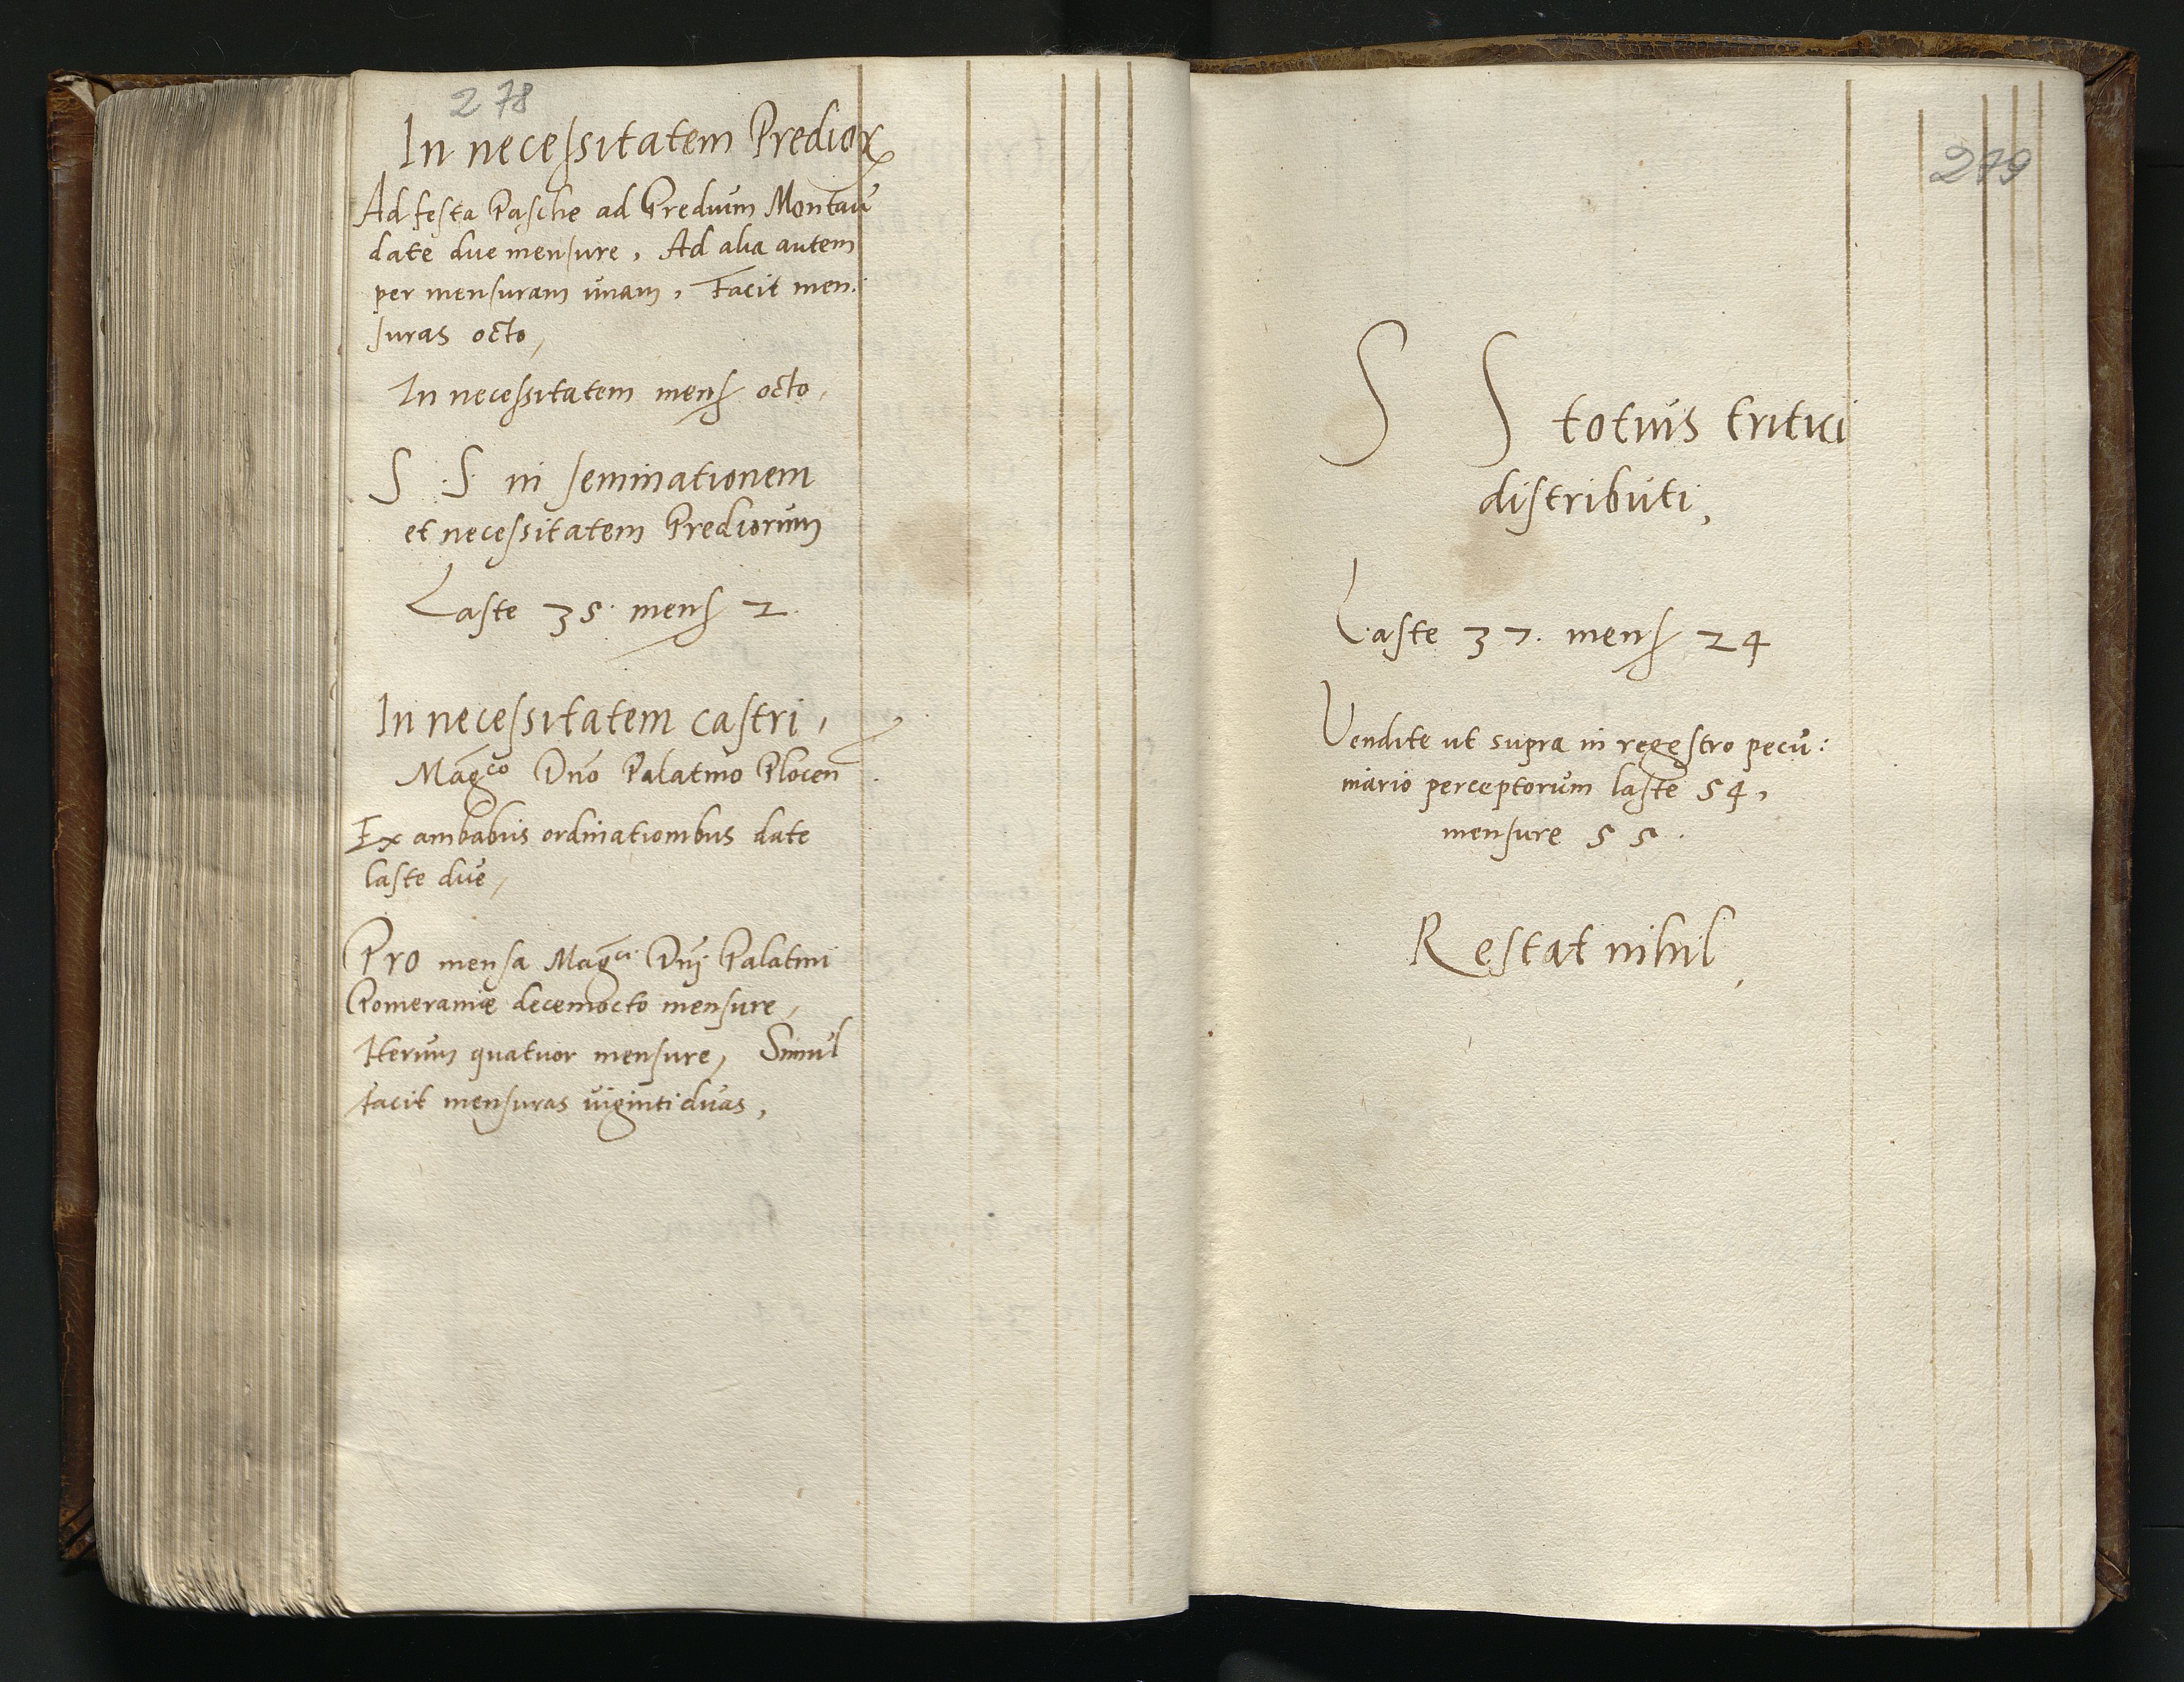 278
In necessitatem Predior
Ad festa Pasche ad Predium Montaŭ
date due mensure, Ad alia autem
per mensuram ŭnam, Facit men:
suras octo,
In necessitatem mens octo,
S S in seminationem
et necessitatem Prediorum
Laste 35. mens 2.
In necessitatem castri,
Magco Dno Palatino Plocen
Ex ambabus ordinationibus date
laste due,
Pro mensa Magci Dnj Palatini
Pomeraniæ decemocto mensure,
Iterum quatuor mensure, Simul
facit mensuras vigintiduas,
279
S S totius tritici
distributi,
Laste 37. mens 24
Vendite ut supra in regestro pecu:
niario perceptorum laste 54,
mensure 55.
Restat nihil,